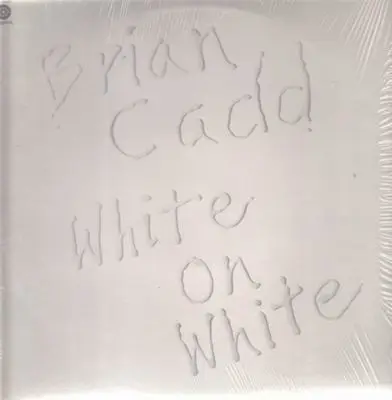 Brian
Cadd
White
on
White